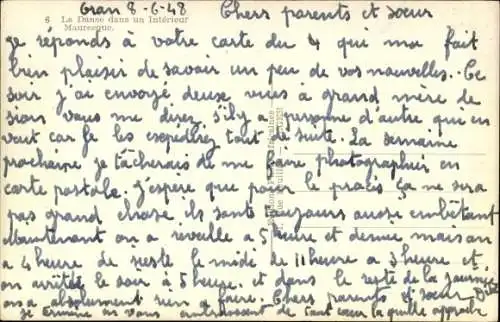 Oran 8-6-48 Chers parents et sœur
6 La Danse dans un Intérieur
Mauresque.
je réponds à votre carte du 4 qui ma fait
bien plaisir de savoir un peu de vos nouvelles. Ce
soir j'ai envoyé deux vues à grand mère de
sions vous me direz s'il y a personne d'autre qui en
veut car je les expédirez tout de suite. La semaine
prochaine je tâcherais de me faire photographier en
carte postale. j'espère que pour le procès ça ne sera
pas grand chose. ils sont toujours aussi embêtant
Maintenant on a reveille a 5 heure et demie mais on
a 4 heure de sieste le midi de 11 heure a 3 heure et
on arrête le soir à 5 heure. et dans le reste de la journée
on a absolument rien a faire. Chers parents et sœur
je termine en vous embrassant de tout cœur la quille approche